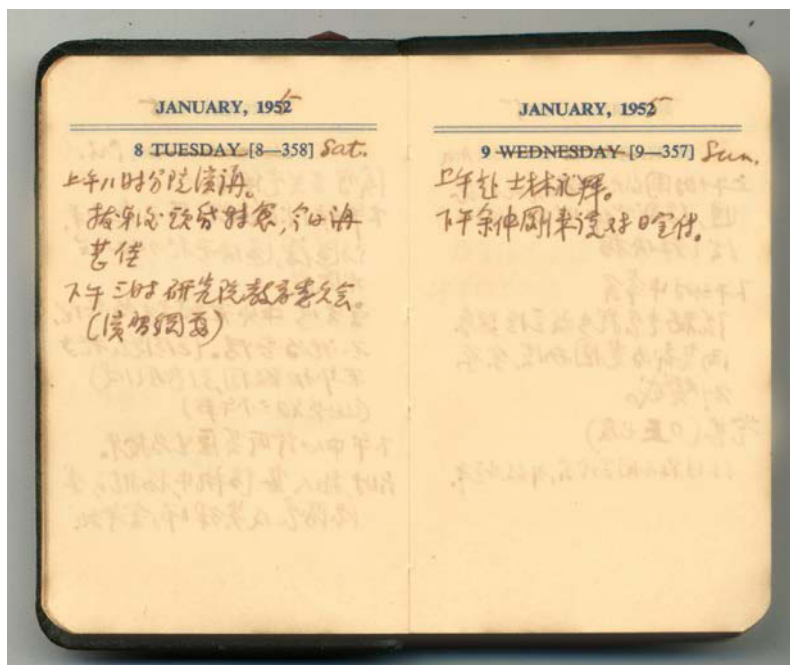 JANUARY, 1955
8 TUESDAY [8—358] Sat.
上午八时分院演講。
拔牙后頭昏特甚,今日講
甚佳
下午三时研究院教育委会。
(演習綱要)
JANUARY, 1955
9 WEDNESDAY [9—357] Sun.
上午赴士林礼拜。
下午余仲剛来谈对日宣传。